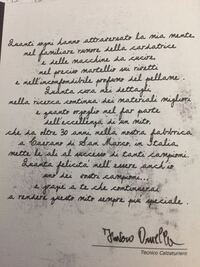 Quanti sogni hanno attraversato la mia mente
nel familiare rumore della cardatrice
e delle macchine da cucire,
nel preciso martello sui rivetti
e nell'inconfondibile profumo del pellame.
Quanta cura nei dettagli
nella ricerca continua dei materiali migliori
e quanto orgoglio nel far parte
dell'eccellenza di un mito,
che da oltre 30 anni, nella nostra fabbrica
a Caerano di San Marco, in Italia,
mette le ali al successo di tanti campioni.
Quanta felicità nell'essere anch'io
uno dei vostri campioni...
e grazie a te che continuerai
a rendere questo mito sempre più speciale.
Tecnico Calzaturiero